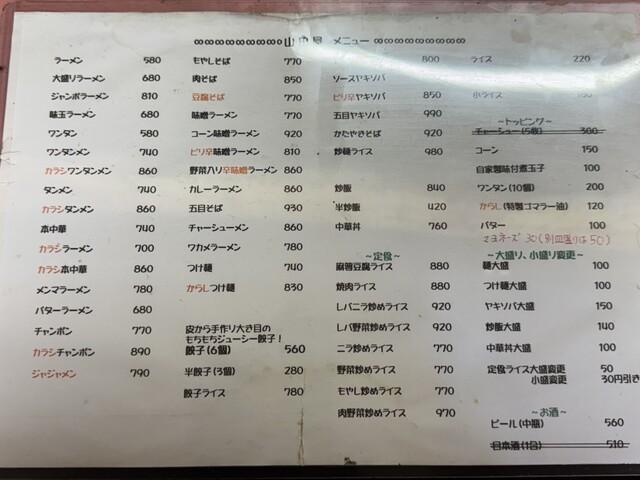 ∞∞∞∞∞∞∞∞∞ 山 屋 メニュー ∞∞∞∞∞∞∞∞∞
ラーメン 580
大盛りラーメン 680
ジャンボラーメン 810
味玉ラーメン 680
ワンタン 580
ワンタンメン 740
カラシワンタンメン 860
タンメン 740
カラシタンメン 860
本中華 740
カラシラーメン 700
カラシ本中華 860
メンマラーメン 780
バターラーメン 680
チャンポン 770
カラシチャンポン 890
ジャジャメン 790
もやしそば 770
肉そば 850
豆腐そば 770
味噌ラーメン 770
コーン味噌ラーメン 920
ピリ辛味噌ラーメン 810
野菜入り辛味噌ラーメン 860
カレーラーメン 860
五目そば 930
チャーシューメン 860
ワカメラーメン 780
つけ麺 740
からしつけ麺 830
皮から手作り大き目の
もちもちジューシー餃子!
餃子(6個) 560
半餃子(3個) 280
餃子ライス 780
800
ソースヤキソバ
ピリ辛ヤキソバ 850
五目ヤキソバ 990
かたやきそば 920
炒麺ライス 980
炒飯 840
半炒飯 420
中華丼 760
~定食~
麻婆豆腐ライス 880
焼肉ライス 880
レバニラ炒めライス 920
レバ野菜炒めライス 920
ニラ炒めライス 770
野菜炒めライス 770
もやし炒めライス 770
肉野菜炒めライス 970
ライス 220
小ライス
~トッピング~
チャーシュー(5枚) 300
コーン 150
自家製味付煮玉子 100
ワンタン(10個) 200
からし(特製ゴマラー油) 120
バター 100
マヨネーズ 30(別皿盛りは50)
~大盛り、小盛り変更~
麺大盛 100
つけ麺大盛 100
ヤキソバ大盛 150
炒飯大盛 140
中華丼大盛 100
定食ライス大盛変更 50
小盛変更 30円引き
~お酒~
ビール(中瓶) 560
日本酒(1合) 510